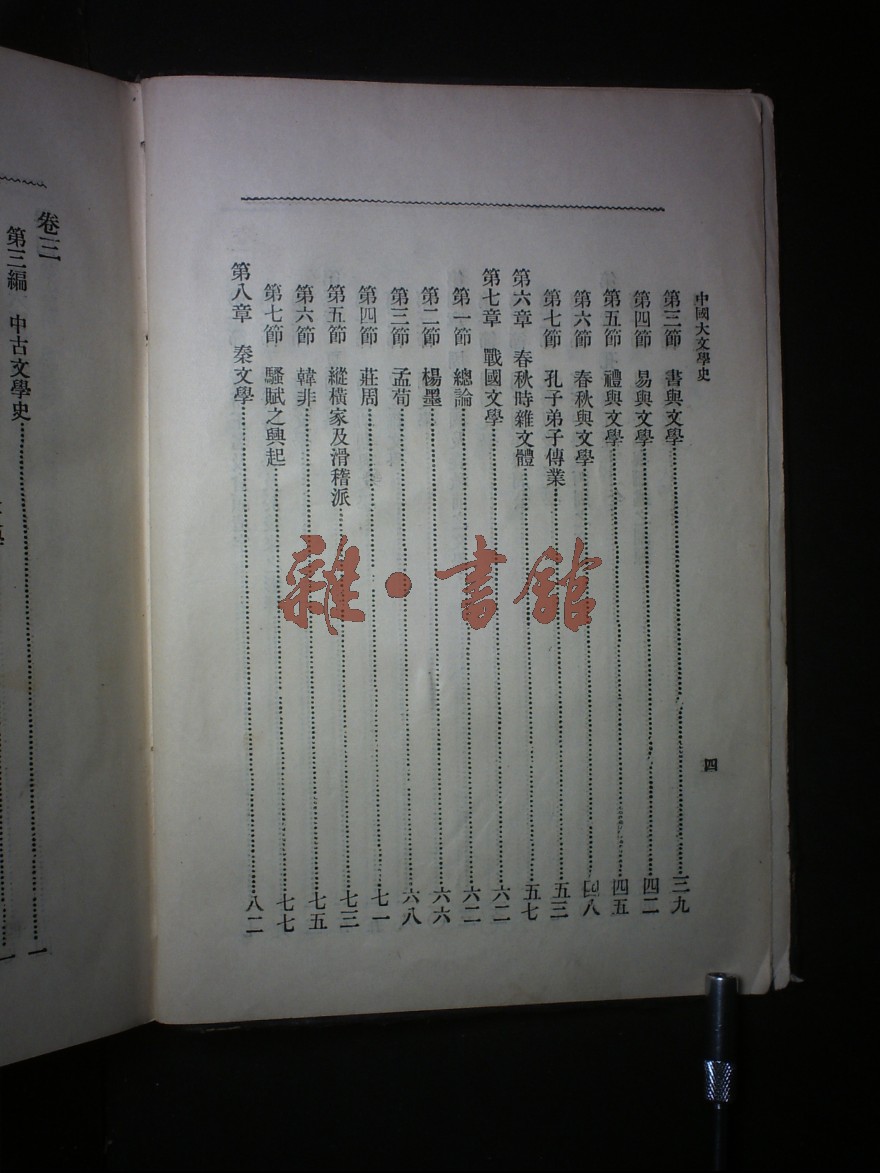 中國大文學史
四
第三節 書與文學……三九
第四節 易與文學……四二
第五節 禮與文學……四五
第六節 春秋與文學……四八
第七節 孔子弟子傳業……五三
第六章 春秋時雜文體……五七
第七章 戰國文學……六二
第一節 總論……六二
第二節 楊墨……六六
第三節 孟荀……六八
第四節 莊周……七一
第五節 縱橫家及滑稽派……七三
第六節 韓非……七五
第七節 騷賦之興起……七七
第八章 秦文學……八二
卷三
第三編 中古文學史……一
雜·書館